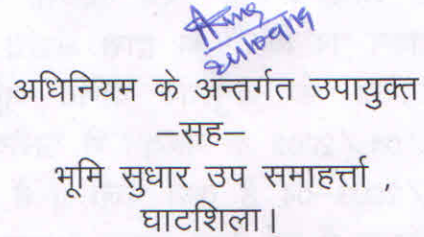 21/09/19
अधिनियम के अन्तर्गत उपायुक्त
–सह–
भूमि सुधार उप समाहर्त्ता ,
घाटशिला।